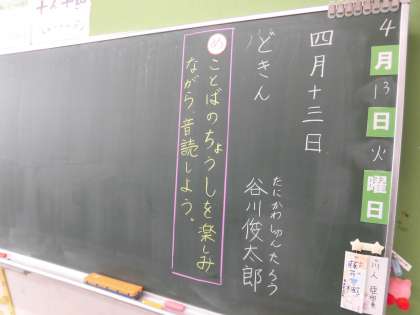 4
月
13
日
火
曜
日
四月十三日
どきん
たにかわしゅんたろう
谷川俊太郎
め
ことばのちょうしを楽しみ
ながら、音読しよう。